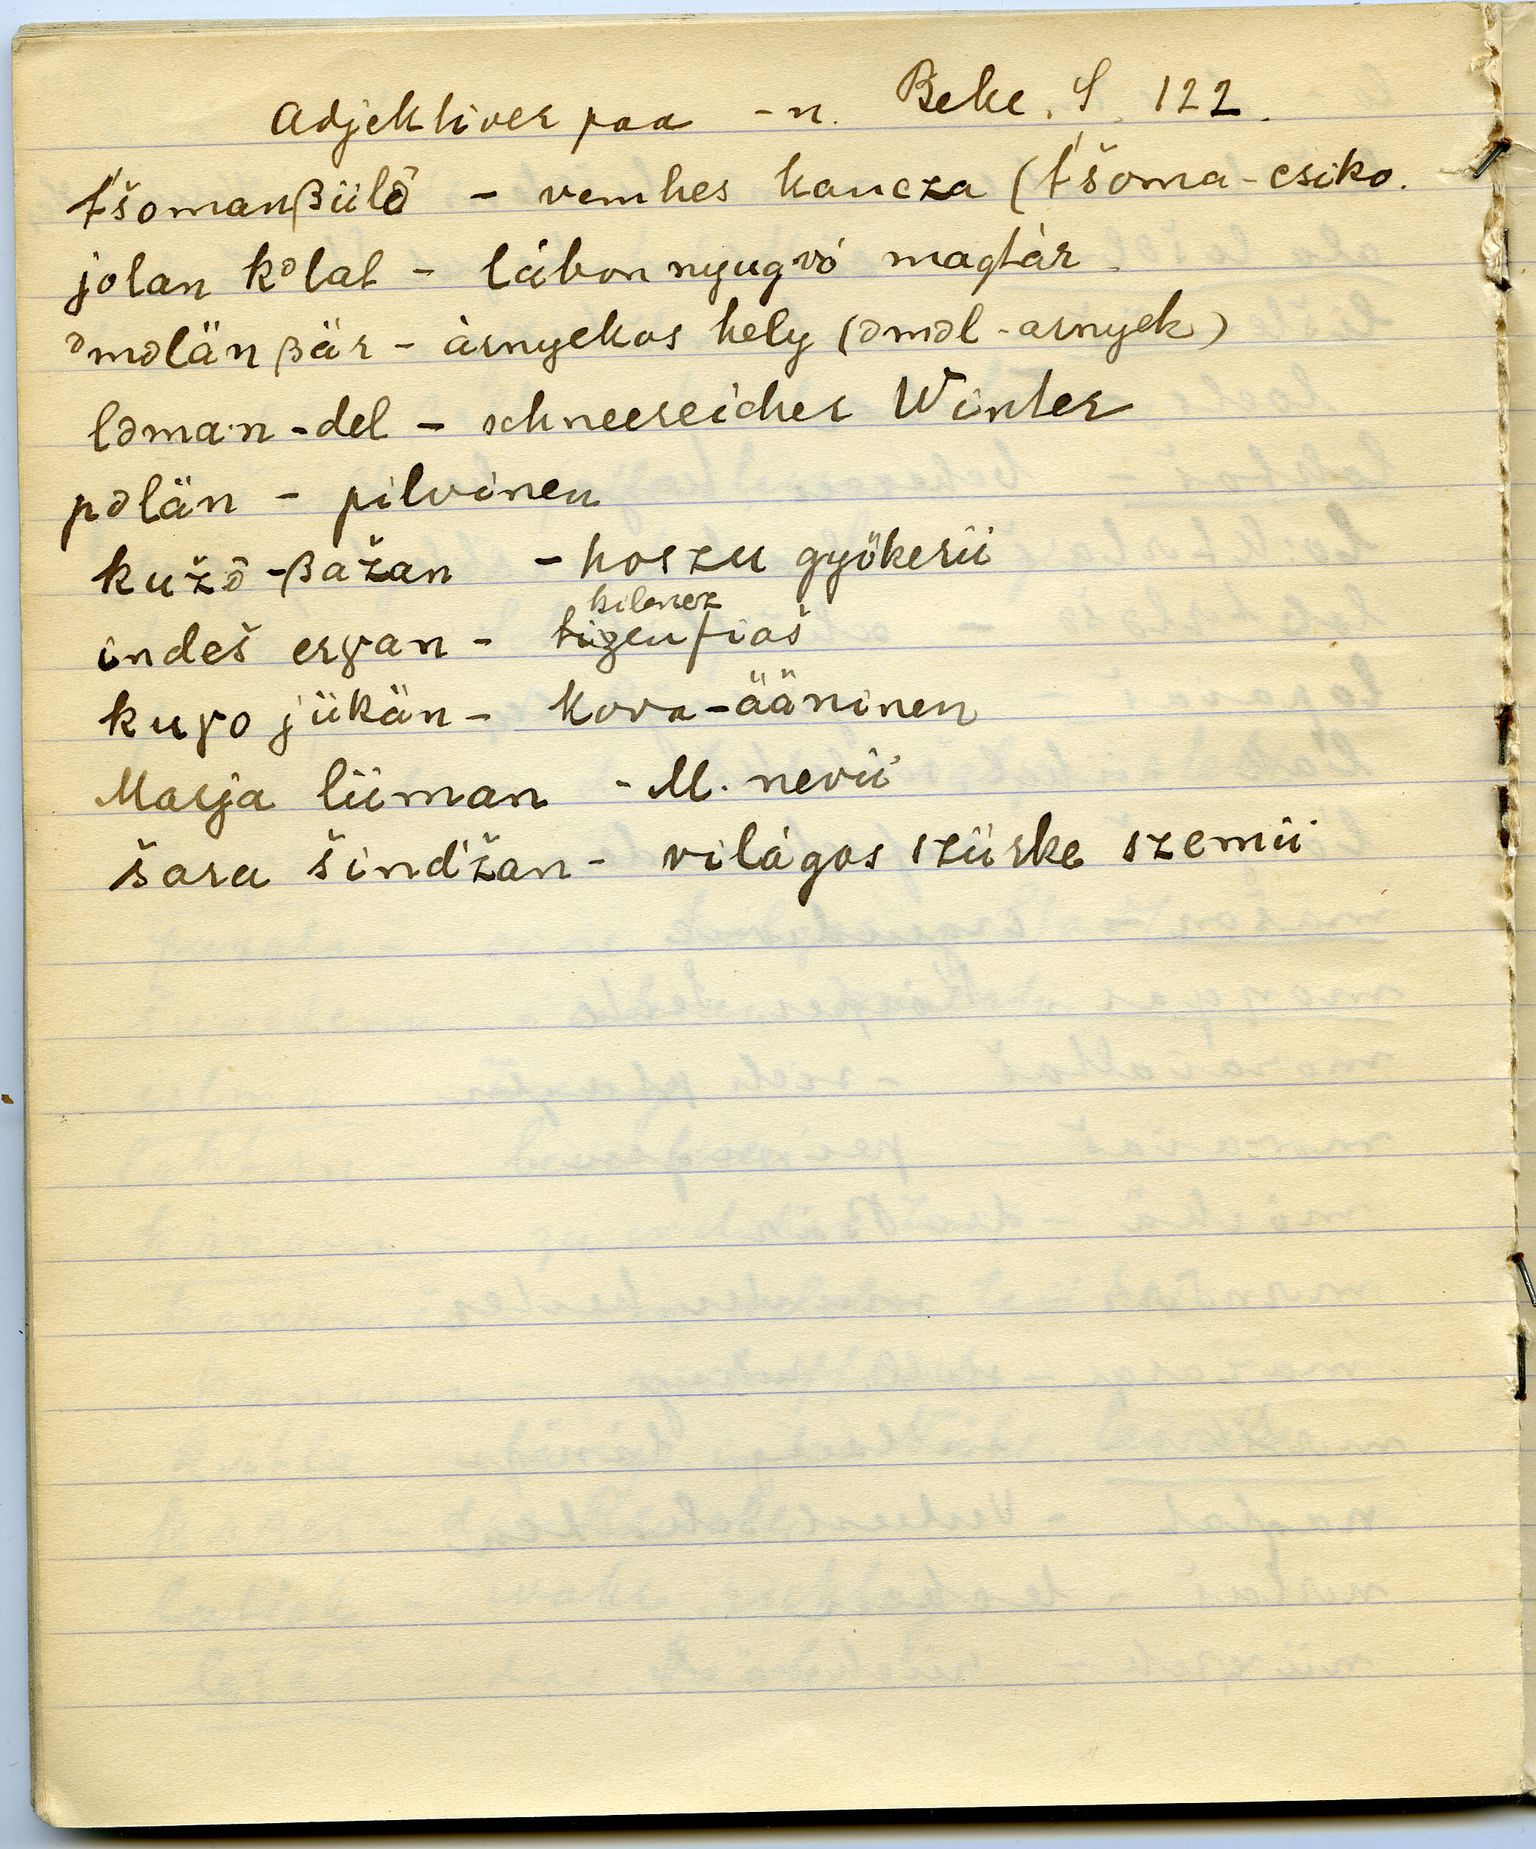 Adjektiver paa -n. Beke. S. 122.
t́šomanβülə̑ - vemhes kancza (t́šoma - csiko.
jolan kə̑lat - lábon nyugvó magtár
əmə̑län βär - àrnyekos hely (əmə̑l - arnyek)
ləman - del - schneereicher Winter
pəlän - pilvinen
kužə̑ - βažan - hoszu gyökerü
kilencz
indeš erγan - tizenfiaś
kuγo jükän - kova-ääninen
Marja lüman - M. nevü
šara šind́žan - világos szürke szemü